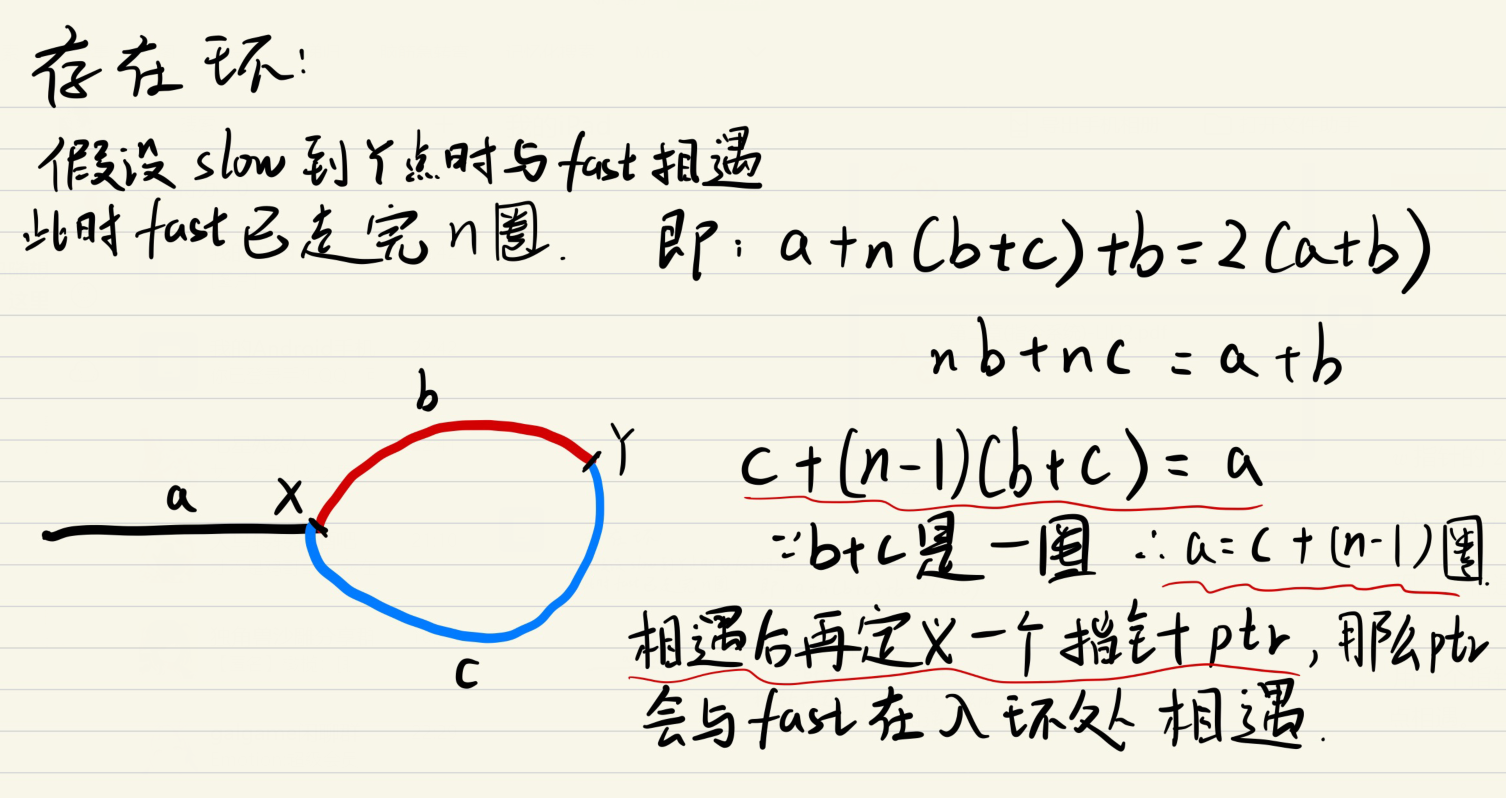 存在环:
假设 slow 到Y点时与fast相遇
此时fast已走完n圈. 即: a+n(b+c)+b=2(a+b)
nb+nc = a+b
b
Y
a
X
c
c+(n-1)(b+c)= a
∵b+c是一圈 ∴a=c+(n-1)圈.
相遇后再定义一个指针ptr,那么ptr
会与fast在入环处相遇.